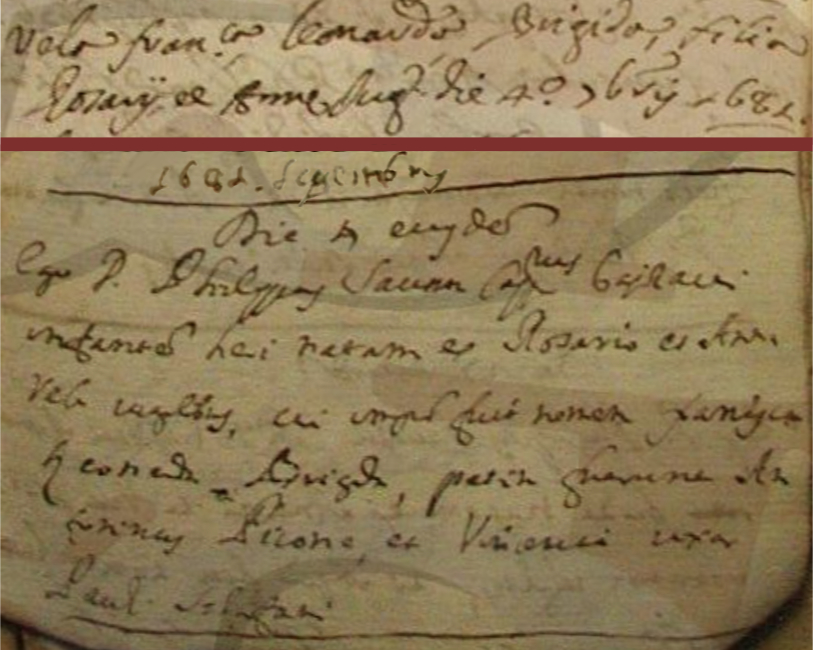 Velo Fran.ca Leonarda Brigida, filia
Rosarij et Anne Jug. die 4.o 7bris 1681.
1681. septembris
Die 4 eiusdem
Ego D. Philippus Cappnus Baptizavi
infantem heri natam ex Rosario et Anna
Velo iugalibus, cui impositum fuit nomen Francisca
Leonarda Brigida, patrini fuerunt An
toninus Picone, et Vincentia uxor
Pauli